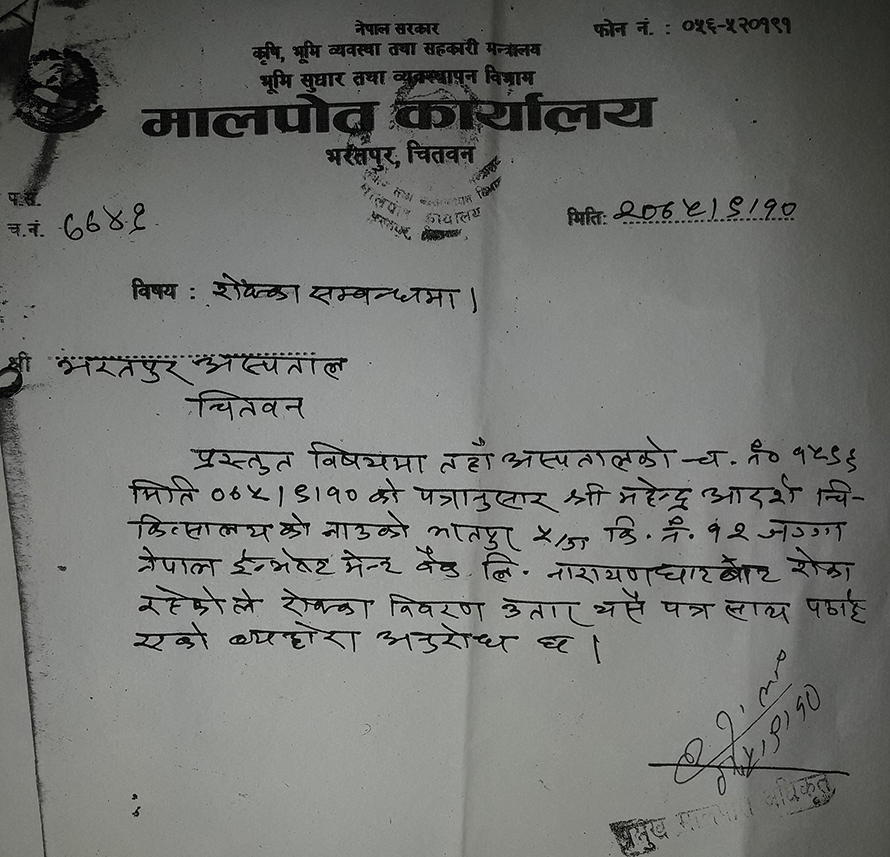 नेपाल सरकार
फोन नं. : ०५६-५२०१९१
कृषि, भूमि व्यवस्था तथा सहकारी मन्त्रालय
भूमि सुधार तथा व्यवस्थापन विभाग
मालपोत कार्यालय
भरतपुर, चितवन
मालपोत कार्यालय
प.सं.
च.नं. ७७४१
मितिः २०६५।९।१०
विषय : रोक्का सम्बन्धमा।
श्री भरतपुर अस्पताल
चितवन
प्रस्तुत विषयमा तहाँ अस्पतालको च. नं०
मिति ०६५।९।१० को पत्रानुसार श्री महेन्द्र आदर्श चि-
कित्सालय को नाउको कि. नं. १२ जग्गा
नेपाल ईन्भेष्ट मेन्ट बैंक लि. नारायणघाट बाट रोक्का
रहेकोले रोक्का विवरण उतार यसै पत्र साथ पठाई
एको ब्यहोरा अनुरोध छ।
प्रमुख मालपोत अधिकृत